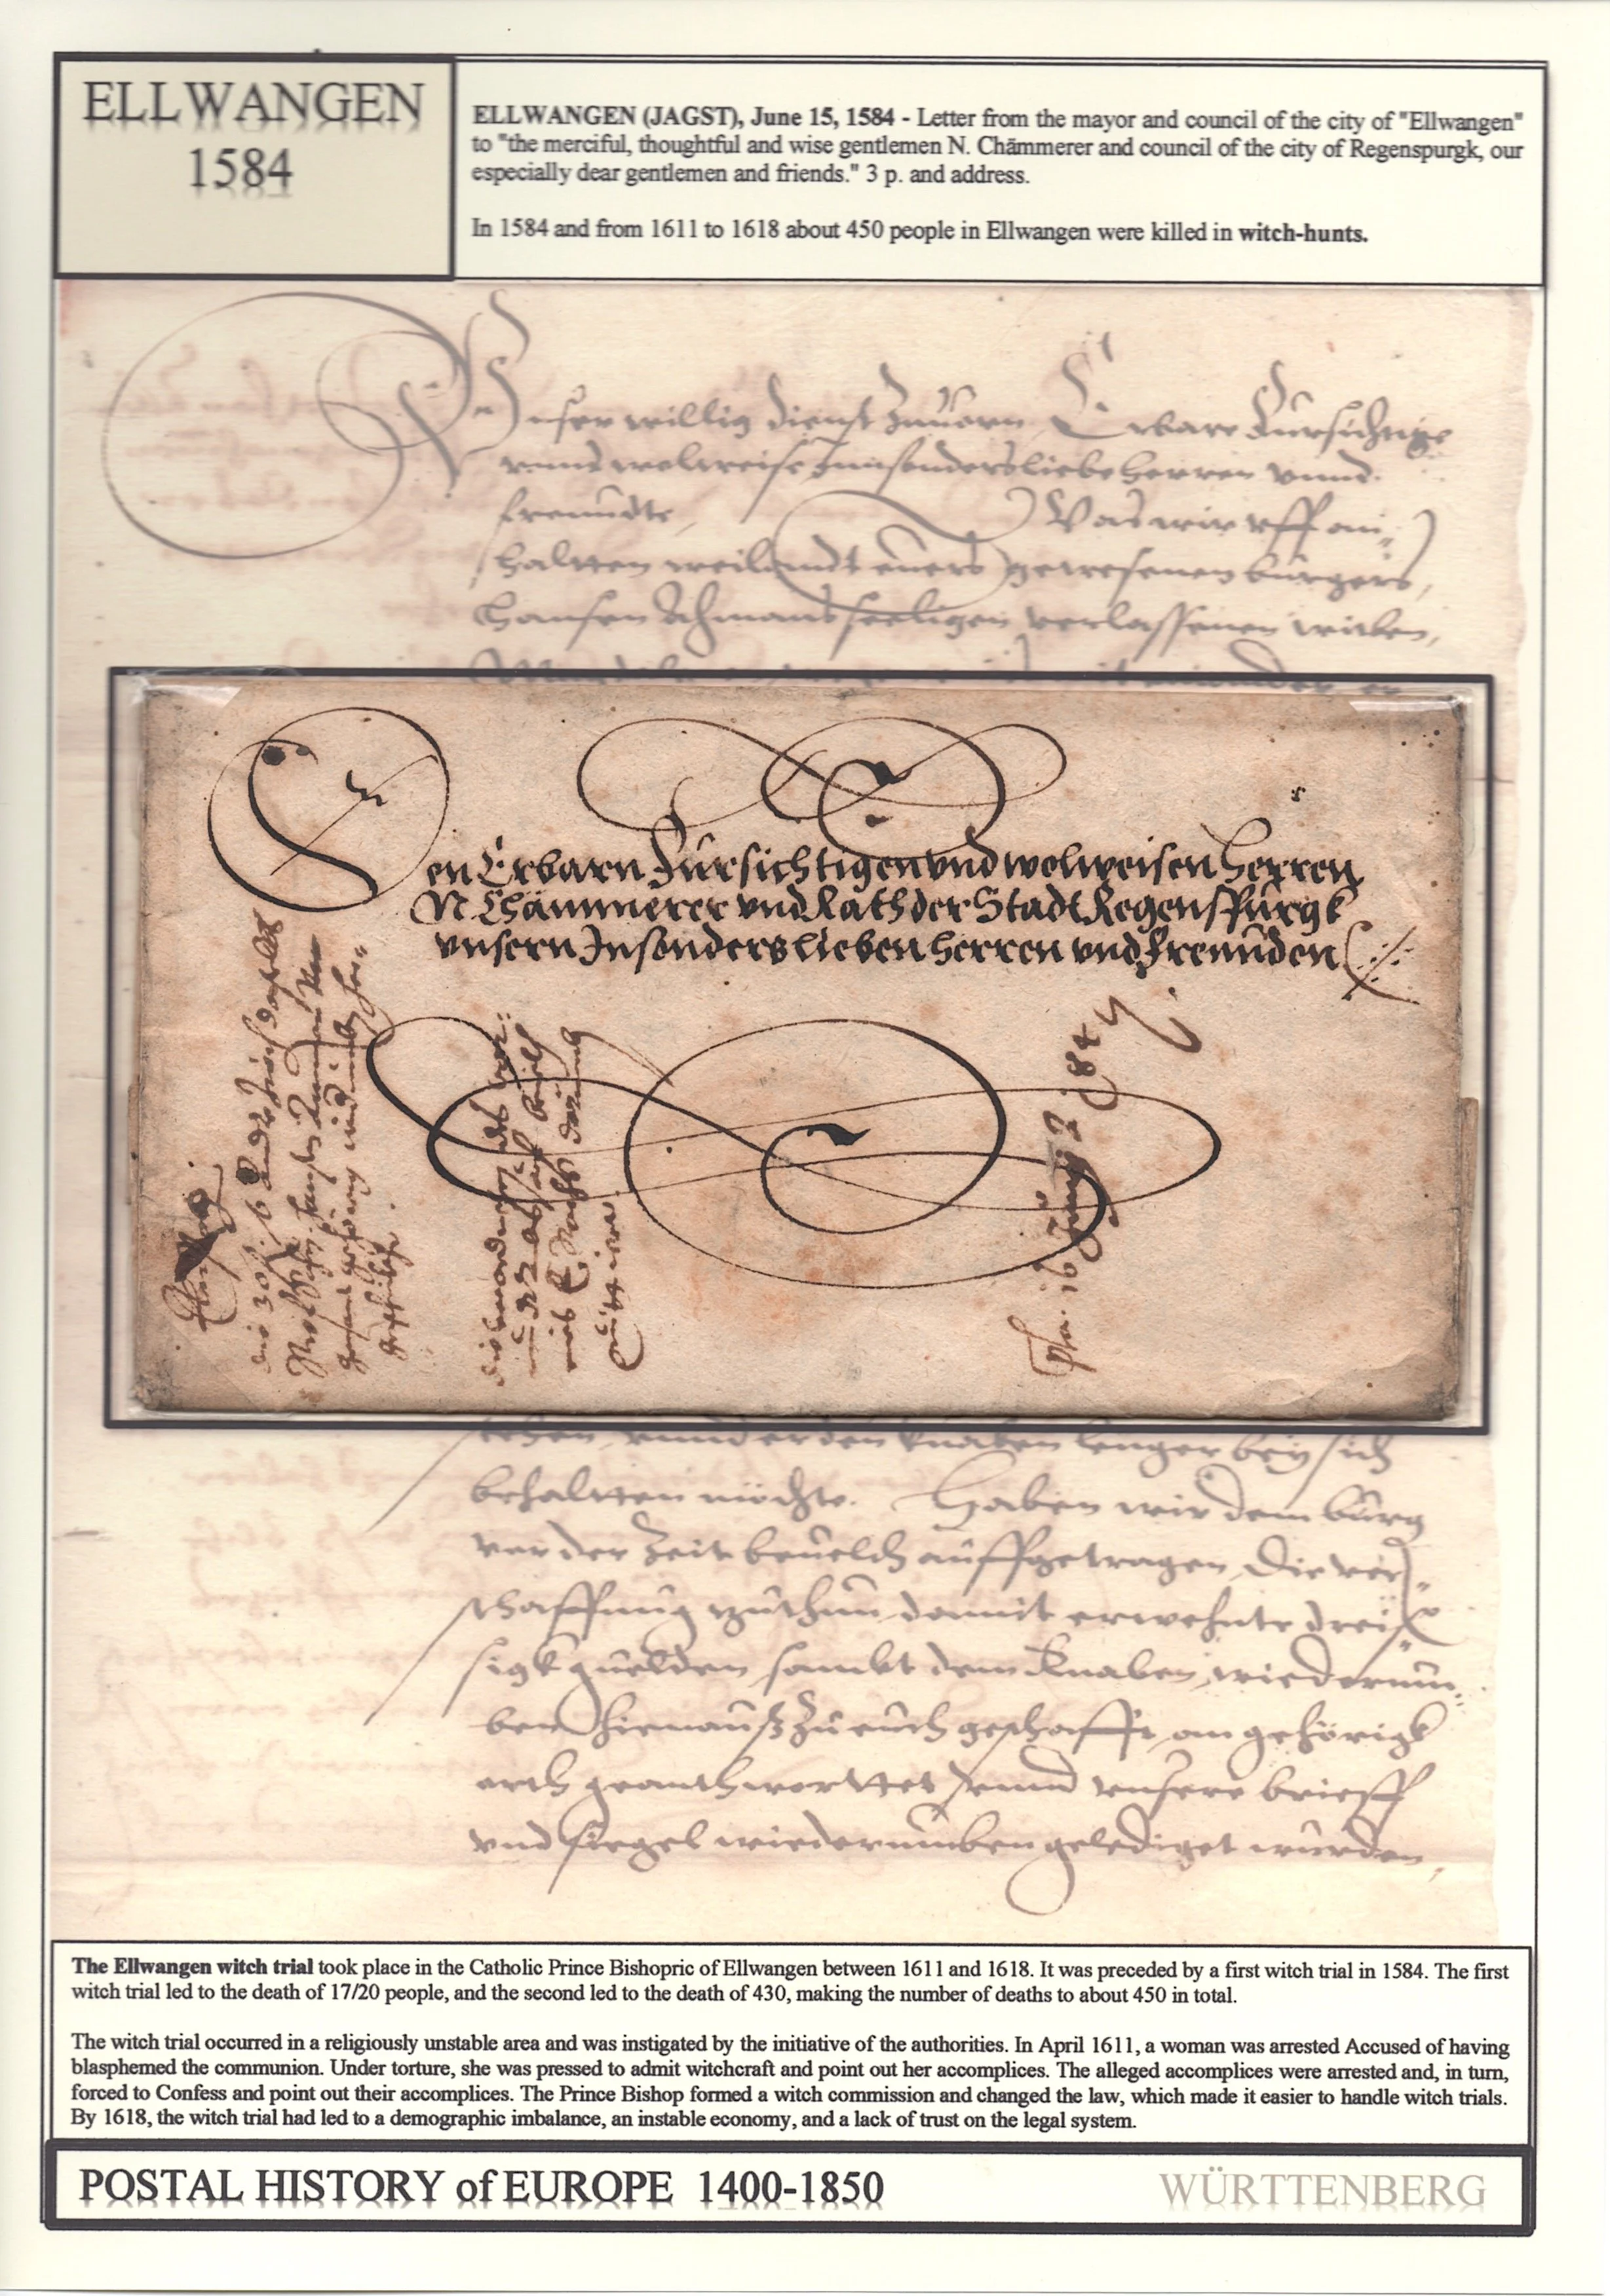 ELLWANGEN
1584
ELLWANGEN (JAGST), June 15, 1584 - Letter from the mayor and council of the city of "Ellwangen"
to "the merciful, thoughtful and wise gentlemen N. Chämmerer and council of the city of Regenspurgk, our
especially dear gentlemen and friends." 3 p. and address.
In 1584 and from 1611 to 1618 about 450 people in Ellwangen were killed in witch-hunts.
Unser willig dienst zuuorn Erbare Fürsichtige
vnnd wolweise Innsonders liebe herren vnnd
freundte, Was wir vff an¬
haltten weilandt euers gewesenen burgers,
Hansen seeligen verlassenen witben,
Den Erbarn Fürsichtigen vnd wolweisen Herren
N Chämmerer vnd Rath der Stadt Regenspurgk
vnsern Insonders lieben herren vnd Freunden
vnnd er den knaben lenger bey sich
behaltten möchte. Haben wir dem burg
vor der Zeit beuelch auffgetragen, Die ver¬
schaffung zuthun damit erwehnte dreis
sigk guelden sambt dem Knaben wiederum¬
ben hienauß zu euch geschafft, an gehörigk
orth geanthworttet vnnd vnsere brieff
vnd siegel wiederumben gelediget wurden,
The Ellwangen witch trial took place in the Catholic Prince Bishopric of Ellwangen between 1611 and 1618. It was preceded by a first witch trial in 1584. The first
witch trial led to the death of 17/20 people, and the second led to the death of 430, making the number of deaths to about 450 in total.
The witch trial occurred in a religiously unstable area and was instigated by the initiative of the authorities. In April 1611, a woman was arrested Accused of having
blasphemed the communion. Under torture, she was pressed to admit witchcraft and point out her accomplices. The alleged accomplices were arrested and, in turn,
forced to Confess and point out their accomplices. The Prince Bishop formed a witch commission and changed the law, which made it easier to handle witch trials.
By 1618, the witch trial had led to a demographic imbalance, an instable economy, and a lack of trust on the legal system.
POSTAL HISTORY of EUROPE 1400-1850
WÜRTTENBERG